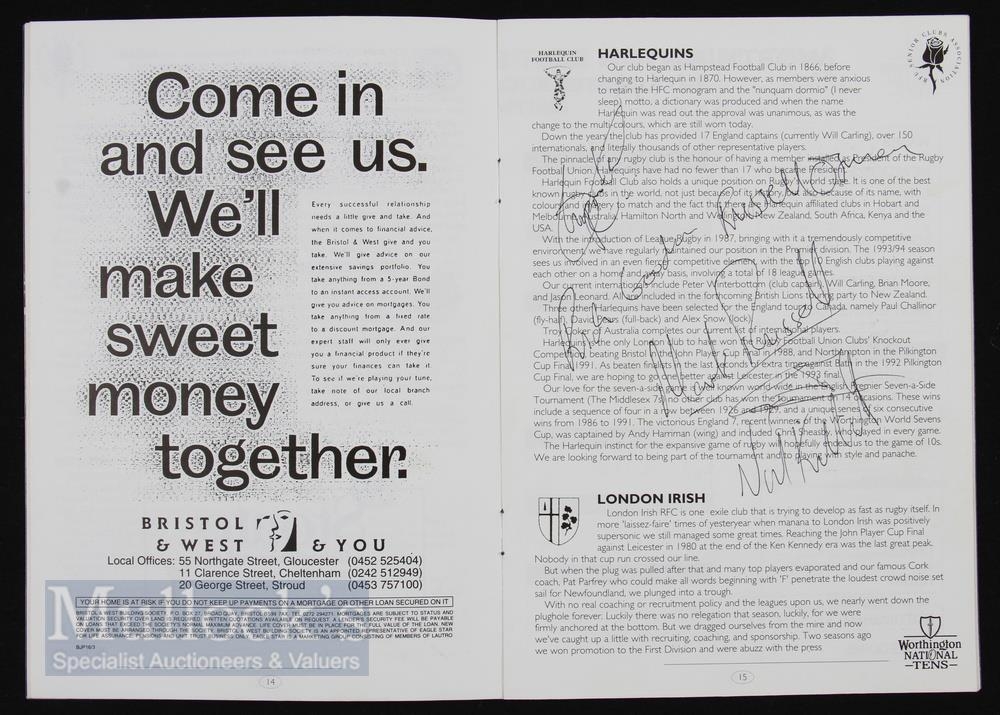 Come in
and see us.
We'll
make
sweet
money
together.
Every successful relationship
needs a little give and take. And
when it comes to financial advice,
the Bristol & West give and you
take. We'll give advice on our
extensive savings portfolio. You
take anything from a 5-year Bond
to an instant access account. We'll
give you advice on mortgages. You
take anything from a fixed rate
to a discount mortgage. And our
expert staff will only ever give
you a financial product if they're
sure your finances can take it.
To see if we're playing your tune,
take note of our local branch
address, or give us a call.
BRISTOL
& WEST & YOU
Local Offices: 55 Northgate Street, Gloucester (0452 525404)
11 Clarence Street, Cheltenham (0242 512949)
20 George Street, Stroud (0453 757100)
YOUR HOME IS AT RISK IF YOU DO NOT KEEP UP PAYMENTS ON A MORTGAGE OR OTHER LOAN SECURED ON IT
BRISTOL & WEST BUILDING SOCIETY, P.O. BOX 27, BROAD QUAY, BRISTOL TEL: 0272 294271. MORTGAGES ARE SUBJECT TO STATUS AND
VALUATION SECURITY OVER LAND IS REQUIRED. WRITTEN QUOTATIONS AVAILABLE ON REQUEST. A LENDER'S SECURITY FEE WILL BE PAYABLE
BJP16/3
Mullock's
Specialist Auctioneers & Valuers
14
HARLEQUIN
FOOTBALL CLUB
HARLEQUINS
SENIOR CLUBS ASSOCIATION
Our club began as Hampstead Football Club in 1866, before
changing to Harlequin in 1870. However, as members were anxious
to retain the HFC monogram and the "nunquam dormio" (I never
sleep) motto, a dictionary was produced and when the name
Harlequin was read out the approval was unanimous, as was the
change to the multi-colours, which are still worn today.
Down the years the club has provided 17 England captains (currently Will Carling), over 150
internationals, and literally thousands of other representative players.
The pinnacle of a rugby club is the honour of having a member installed as President of the Rugby
Football Union. Harlequins have had no fewer than 17 who became President.
Harlequin Football Club also holds a unique position on Rugby's world stage. It is one of the best
known rugby clubs in the world, not just because of its history, but also because of its name, with
colours and imagery to match and the fact that Harlequin affiliated clubs in Hobart and
Melbourne Australia, Hamilton North and Wellington New Zealand, South Africa, Kenya and the
USA.
With the introduction of League Rugby in 1987, bringing with it a tremendously competitive
environment, we have regularly maintained our position in the Premier division. The 1993/94 season
sees us involved in an even fiercer competitive element, with the top 10 English clubs playing against
each other on a home and away basis, involving a total of 18 league games.
Our current internationals include Peter Winterbottom (club captain), Will Carling, Brian Moore,
and Jason Leonard. All are included in the forthcoming British Lions party to New Zealand.
Three other Harlequins have been selected for the England tour of Canada, namely Paul Challinor
(fly-half), David Pears (full-back) and Alex Snow (lock).
Troy of Australia completes our current list of international players.
Harlequin is the only London club to have won the Rugby Football Union Clubs' Knockout
Competition, beating Bristol in the John Player Cup Final in 1988, and Northampton in the Pilkington
Cup Final 1991. As beaten finalists in the last seconds of extra time against Bath in the 1992 Pilkington
Cup Final, we are hoping to go one better against Leicester in the 1993 final.
Our love for the seven-a-side game is known world-wide in the English Premier Seven-a-Side
Tournament (The Middlesex 7s). No other club has won the tournament on 14 occasions. These wins
include a sequence of four in a row between 1926 and 1929, and a unique series of six consecutive
wins from 1986 to 1991. The victorious England 7, recent winners of the Worthington World Sevens
Cup, was captained by Andy Harriman (wing) and included Chris Sheasby, who played in every game.
The Harlequin instinct for the expansive game of rugby will hopefully endear us to the game of 10s.
We are looking forward to being part of the tournament and to playing with style and panache.
Mark Russell
LONDON IRISH
London Irish RFC is one exile club that is trying to develop as fast as rugby itself. In
more 'laissez-faire' times of yesteryear when manana to London Irish was positively
supersonic we still managed some great times. Reaching the John Player Cup Final
against Leicester in 1980 at the end of the Ken Kennedy era was the last great peak.
Nobody in that cup run crossed our line.
But when the plug was pulled after that and many top players evaporated and our famous Cork
coach, Pat Parfrey who could make all words beginning with 'F' penetrate the loudest crowd noise set
sail for Newfoundland, we plunged into a trough.
With no real coaching or recruitment policy and the leagues upon us, we nearly went down the
plughole forever. Luckily there was no relegation that season, luckily, for we were
firmly anchored at the bottom. But we dragged ourselves from the mire and now
we've caught up a little with recruiting, coaching, and sponsorship. Two seasons ago
we won promotion to the First Division and were abuzz with the press
Worthington
NATIONAL
TENS
15